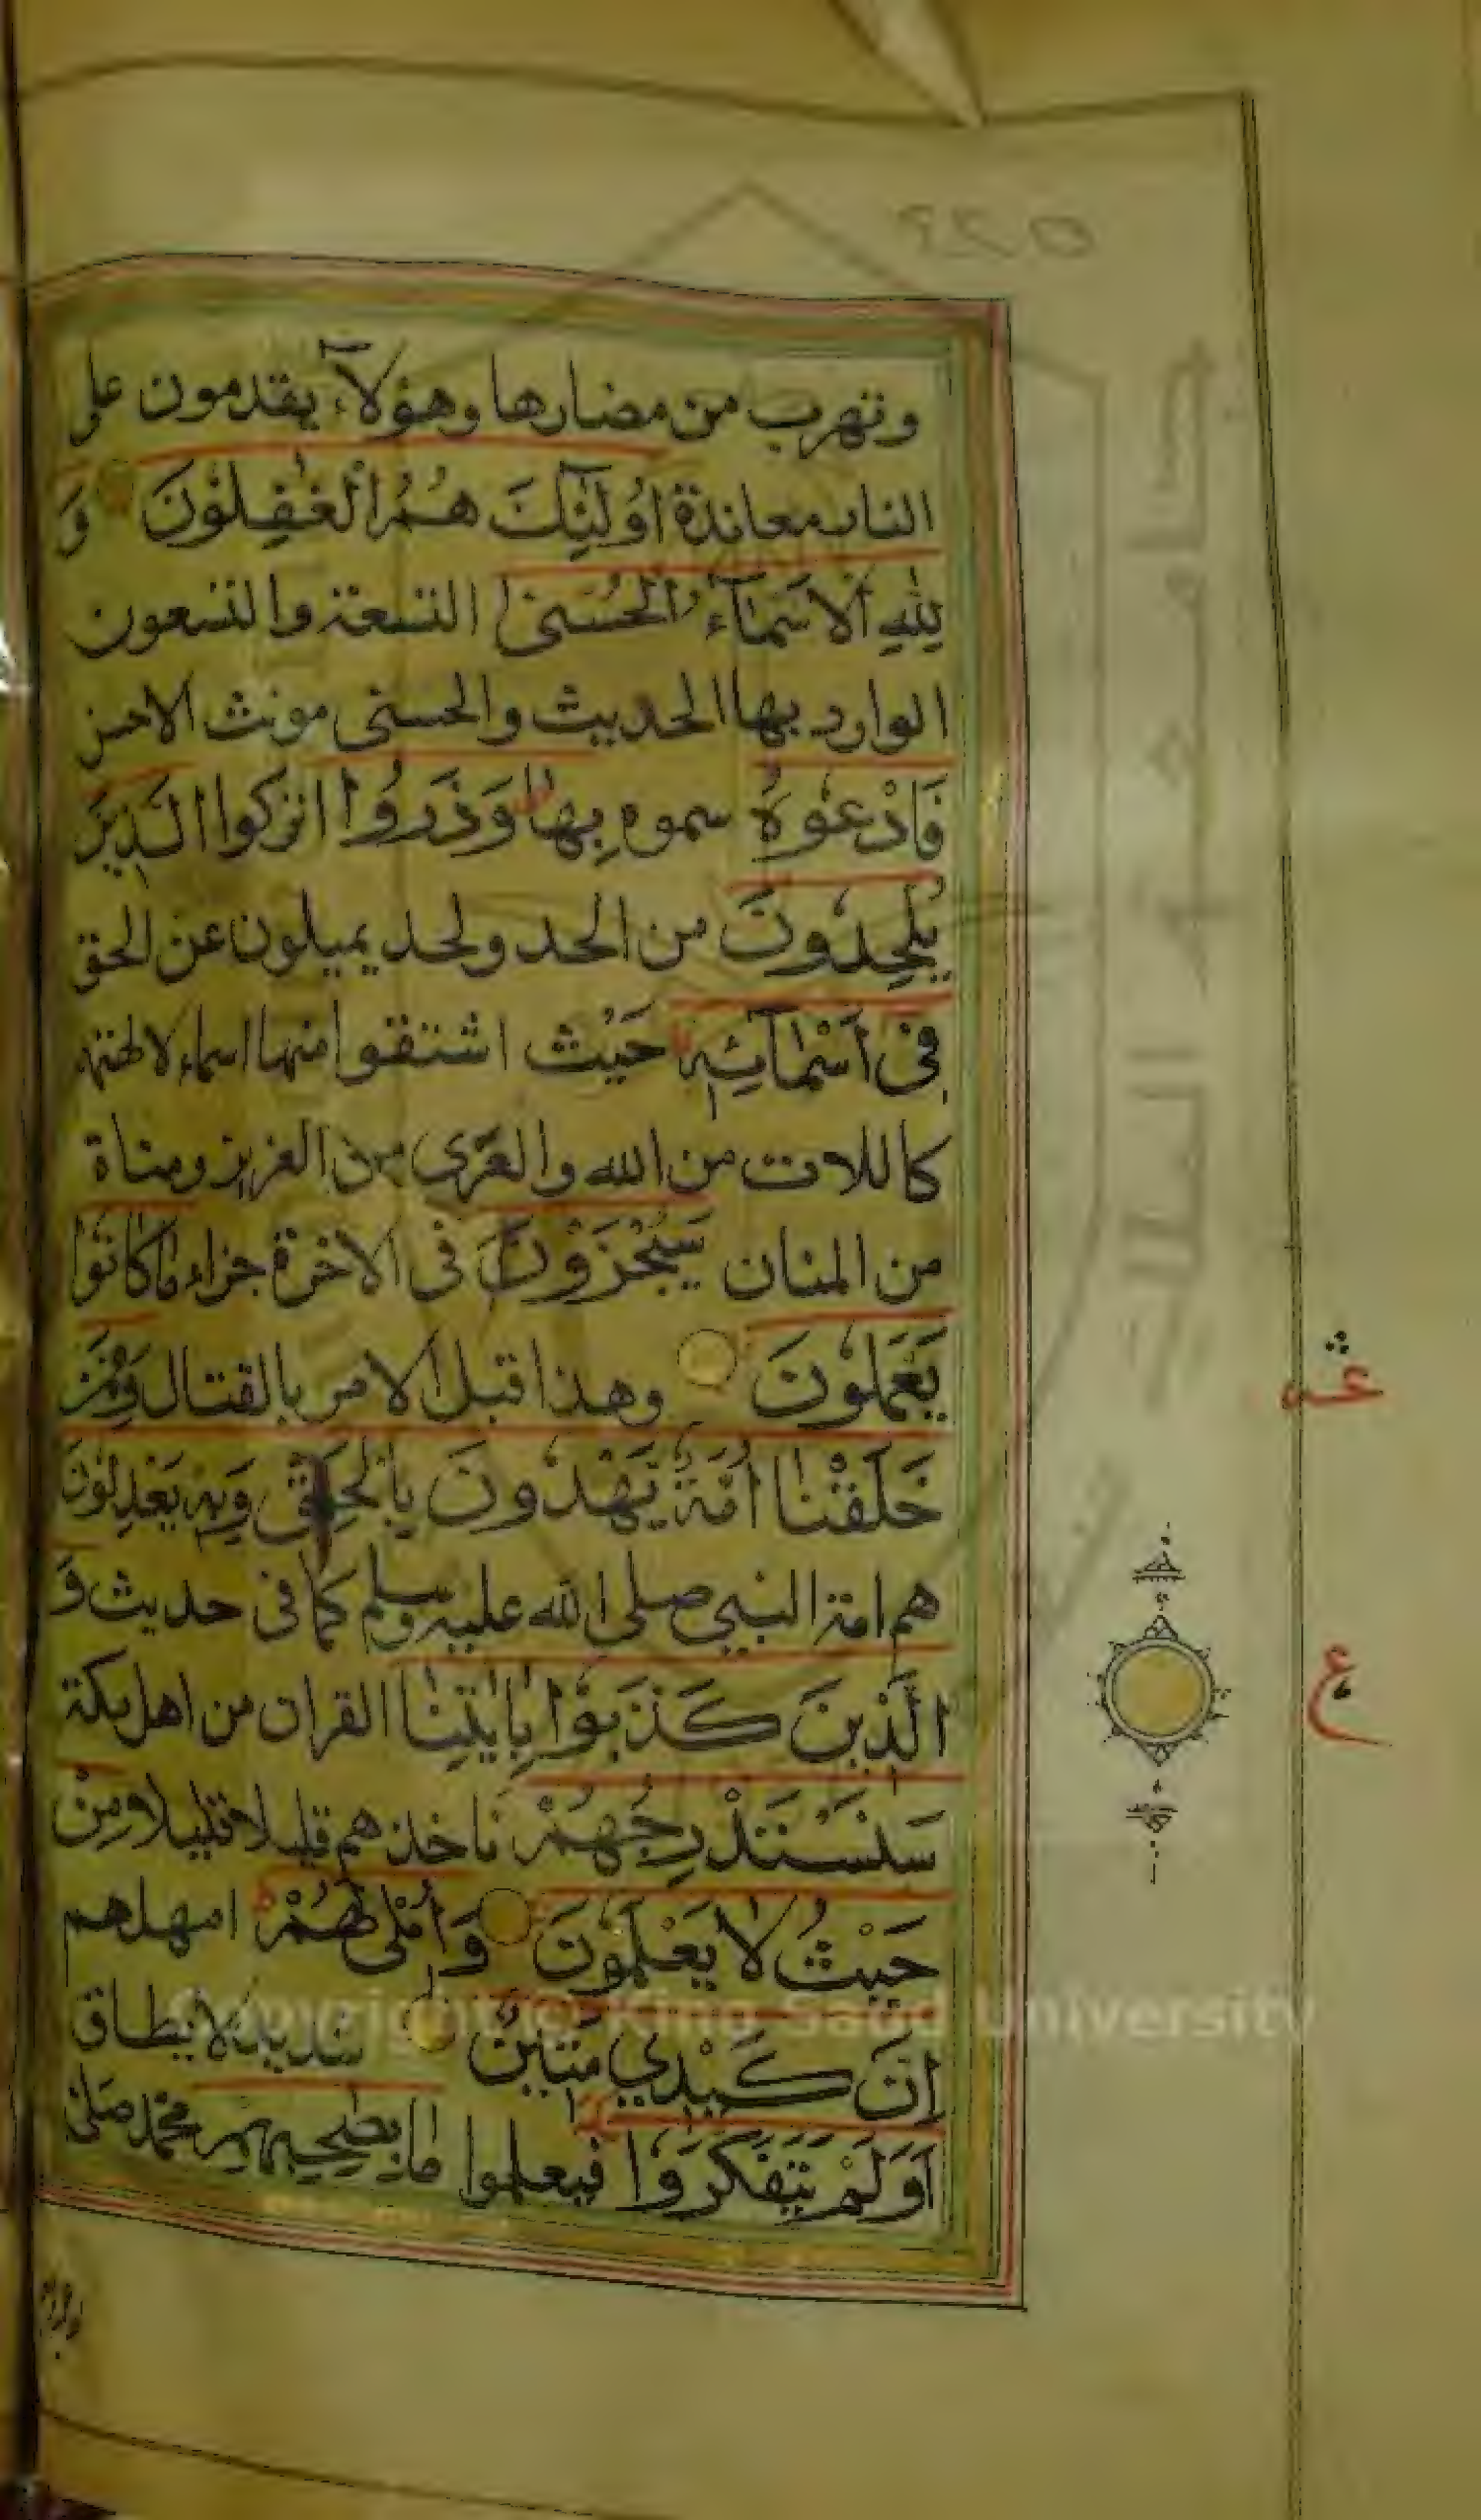 وتهرب من مضارها وهؤلآء يقدمون على
النار معاندة اُولٰٓئِكَ هُمُ الْغٰفِلُوْنَ وَ
لِلّٰهِ الْاَسْمَآءُ الْحُسْنٰى التسعة والتسعون
الوارد بها الحديث والحسنى مونث الاحسن
فَادْعُوْهُ سموه بِهَا وَذَرُوا اتركوا الَّذِيْنَ
يُلْحِدُوْنَ من الحد ولحد يميلون عن الحق
فِىْ اَسْمَآئِهٖ حيث اشتقوا منها اسماء لالهتهم
كاللات من الله والعزى من العزيز ومناة
من المنان سَيُجْزَوْنَ فى الاخرة جزاء مَا كَانُوْا
يَعْمَلُوْنَ وهذا قبل الامر بالقتال وَمِمَّنْ
خَلَقْنَا اُمَّةٌ يَّهْدُوْنَ بِالْحَقِّ وَبِهٖ يَعْدِلُوْنَ
هم امة النبى صلى الله عليه وسلم كما فى حديث وَ
الَّذِيْنَ كَذَّبُوْا بِاٰيٰتِنَا القران من اهل مكة
سَنَسْتَدْرِجُهُمْ ناخذهم قليلا قليلا مِنْ
حَيْثُ لَا يَعْلَمُوْنَ وَاُمْلِىْ لَهُمْ امهلهم
اِنَّ كَيْدِيْ مَتِيْنٌ شديد لا يطاق
اَوَلَمْ يَتَفَكَّرُوْا فيعلموا مَا بِصَاحِبِهِمْ محمد صلى
عشر
ع
Copyright © King Saud University